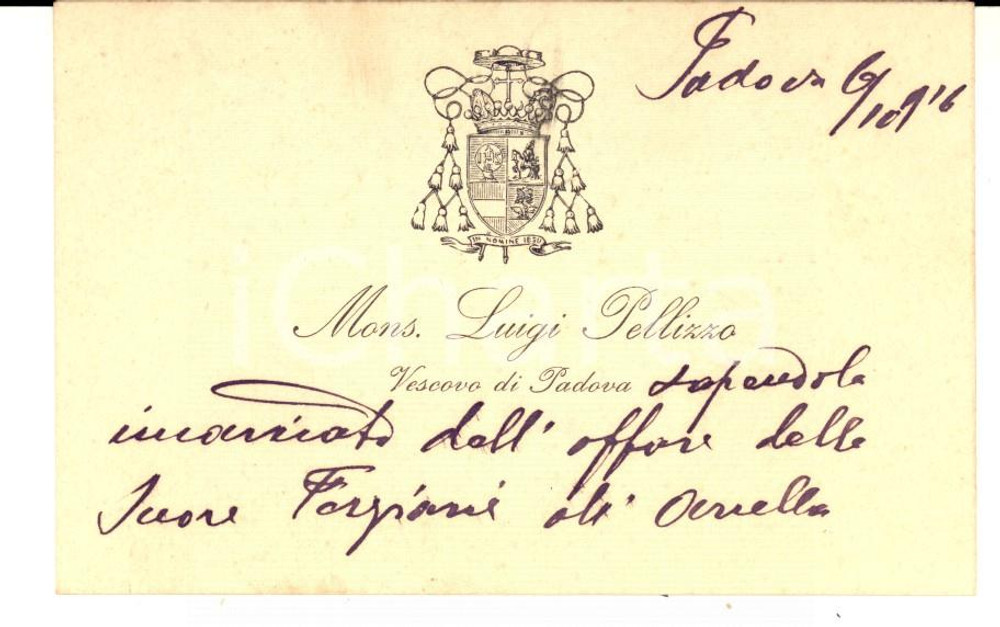 Padova 6/10 916
IN NOMINE IESU
Mons. Luigi Pellizzo
Vescovo di Padova sapendola
incaricato dell' affare delle
Suore Terziarie di